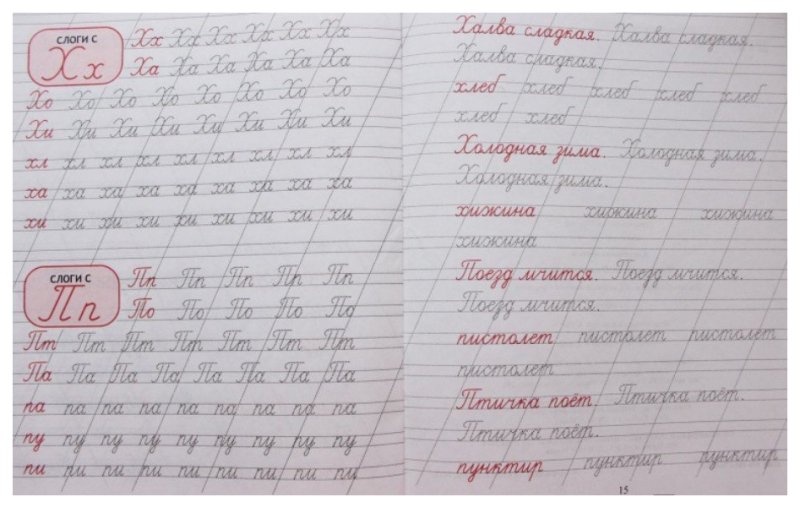 слоги с
Х х
Хх Хх Хх Хх Хх Хх
Ха Ха Ха Ха Ха Ха
Хо Хо Хо Хо Хо Хо Хо Хо
Хи Хи Хи Хи Хи Хи Хи Хи
хл хл хл хл хл хл хл хл хл
ха ха ха ха ха ха ха ха ха
хи хи хи хи хи хи хи хи хи
слоги с
П п
Пп Пп Пп Пп Пп
По По По По По
Пт Пт Пт Пт Пт Пт Пт
Па Па Па Па Па Па Па Па
па па па па па па па па па
пу пу пу пу пу пу пу пу пу
пи пи пи пи пи пи пи пи пи
Халва сладкая. Халва сладкая.
Халва сладкая.
хлеб хлеб хлеб хлеб хлеб
хлеб хлеб
Холодная зима. Холодная зима.
Холодная зима.
хижина хижина хижина
хижина
Поезд мчится. Поезд мчится.
Поезд мчится.
пистолет пистолет пистолет
пистолет
Птичка поёт. Птичка поёт.
Птичка поёт.
пунктир пунктир пунктир
15